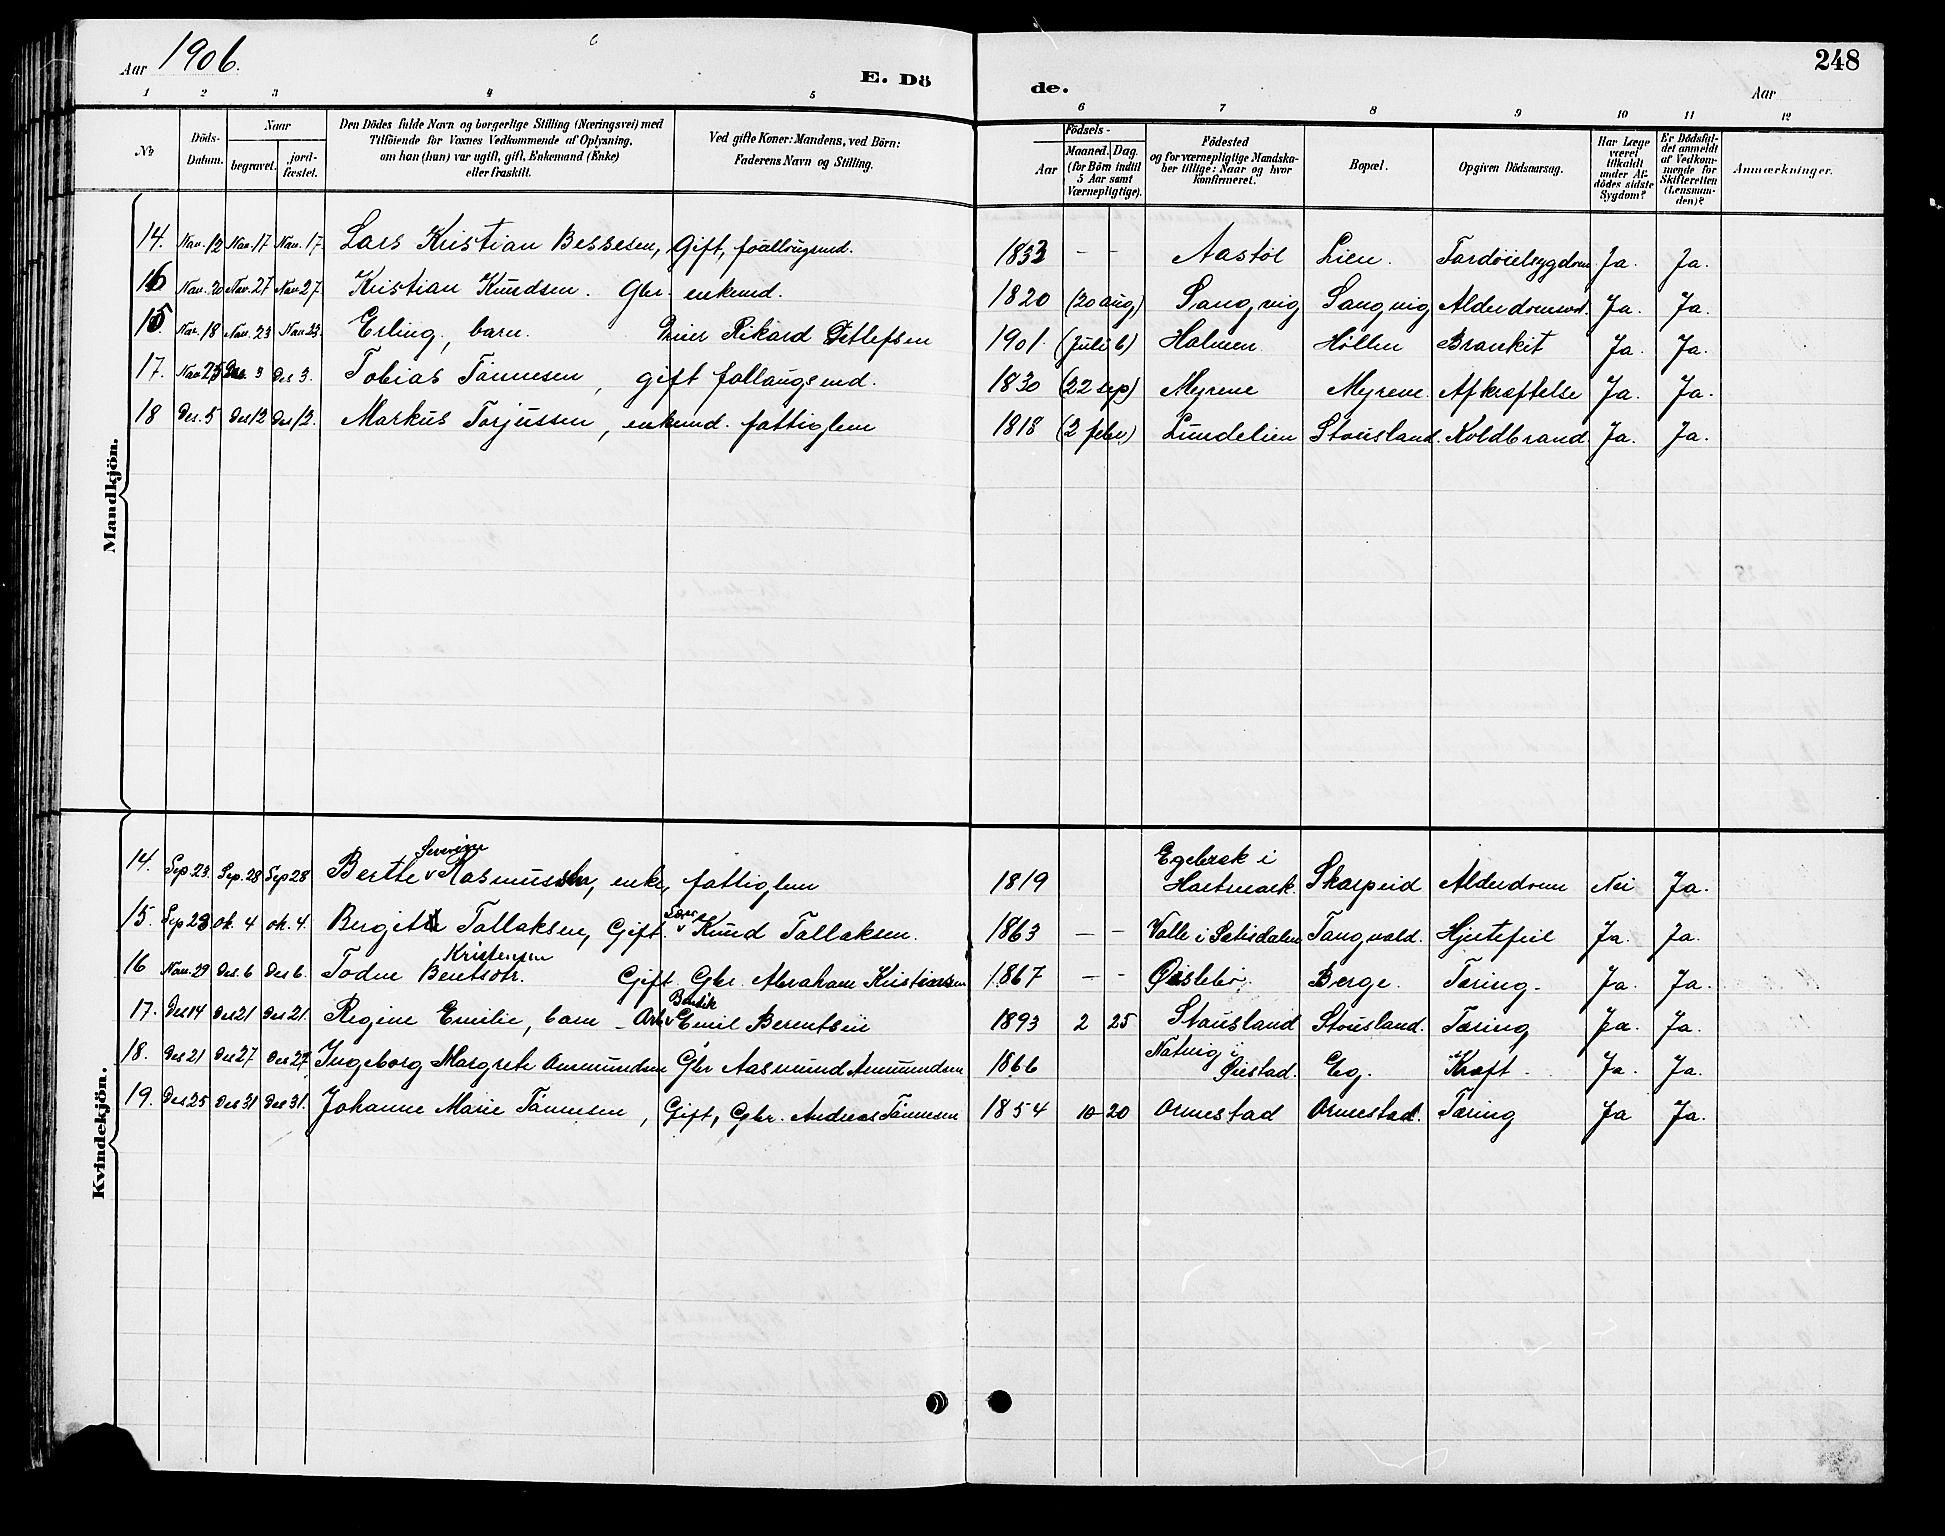 Aar 1906.
E. Dö de.
248
Aar
1 2 3 4 5 6 7 8 9 10 11 12
№
Döds-Datum.
Naar
begravet.
jord-fæstet.
Den Dödes fulde Navn og borgerlige Stilling (Næringsvei) med
Tilföiende for Voxnes Vedkommende af Oplysning,
om han (hun) var ugift, gift, Enkemand (Enke)
eller fraskilt.
Ved gifte Koner: Mandens, ved Börn:
Faderens Navn og Stilling.
Födsels-
Aar
Maaned. Dag.
(for Börn indtil
5 Aar samt
Værnepligtige).
Födested
og for værnepligtige Mandska-
ber tillige: Naar og hvor
konfirmeret.
Bopæl.
Opgiven Dödsaarsag.
Har Læge
været
tilkaldt
under Af-
dödes sidste
Sygdom?
Er Dödsfal-
det anmeldt
af Vedkom-
mende for
Skifteretten
(Lensman-
den)?
Anmærkninger.
Mandkjön.
14. Nov. 12 Nov. 17 Nov. 17. Lars Kristian Bessesen, Gift, 1833 - - Aastöl Lien. Ja. Ja.
16 Nov. 20 Nov. 27 Nov 27. Kristian Knudsen. Gbr. enkemd. 1820 (20 aug) Sangvig Sangvig Ja. Ja.
15 Nov. 18 Nov. 23 Nov 23. Erling, barn. Rikard Detlefsen 1901. (Juli 6) Holmen Höllen Bronkit Ja. Ja.
17. Nov 25 Des. 3 Des 3. Tobias Tönnesen, gift 1830 (22 sep) Myrene Myrene. Afkræftelse Ja. Ja.
18 Des. 5 Des 12 Des 12. Markus Torjussen, enkemd. fattiglem 1818 (2 febr) Lundelien Stousland. Koldbrand. Ja. Ja.
Kvindekjön.
Severine
14. Sep. 23. Sep. 28 Sep 28 Berthe v Rasmussen, enke, fattiglem 1819 Hartmark. Skarpeid Alderdom Nei Ja.
15. Sep 23 ok. 4 ok. 4. Bergit Tallaksen, Gift. v Knud Tallaksen. 1863 - - Valle i Sætisdalen Tangvald. Hjertefeil Ja. Ja.
Kristensen
16 Nov. 29 Des. 6 Des 6. Todne Bentsdtr. Gift. Gbr. Abraham Kristensen 1867 - - Øislebö. Berge. Tæring. Ja. Ja.
Bendik
17. Des 14 Des 21 Des 21. Regine Emilie, barn - Arb. v Emil Berentsen 1893 2 25 Stausland Stousland. Tæring Ja. Ja.
18. Des 21 Des 27 Des 27 Ingeborg Margrete Aanmundsen Gbr Aasmund Aanmundsen 1866 Natvig i Øiestad. Eg. Kræft. Ja. Ja.
19. Des 25 Des 31 Des 31. Johanne Marie Tönnesen, Gift, Gbr. Andreas Tönnesen 1854 10 - 20 Ormestad Ormestad. Tæring Ja Ja.